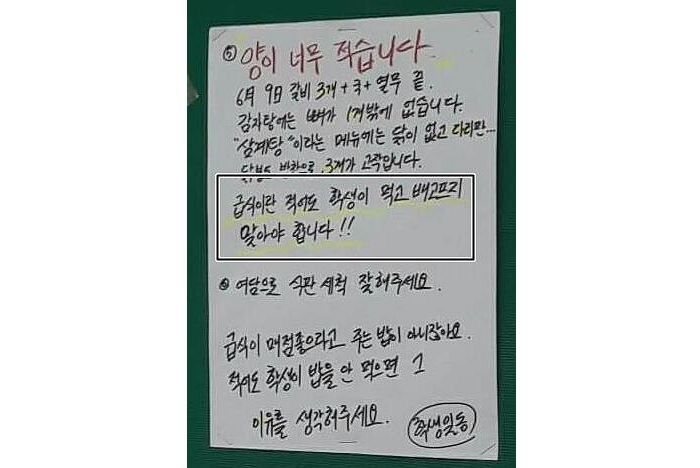 ⑤ 양이 너무 적습니다.
6月 9日 갈비 3개 + 국 + 열무 끝.
감자탕에는 뼈가 1개밖에 없습니다.
"삼계탕"이라는 메뉴에는 닭이 없고 다리만...
3개가 고작입니다.
급식이란 적어도 학생이 먹고 배고프지
말아야 합니다!!
여담으로 식판 세척 잘해주세요.
급식이 매점좋으라고 주는 밥이 아니잖아요.
적어도 학생이 밥을 안 먹으면 그
이유를 생각해주세요.
학생일동